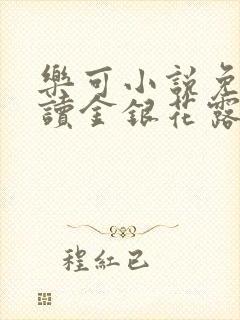 樂可小說免
讀金銀花露
程紅已